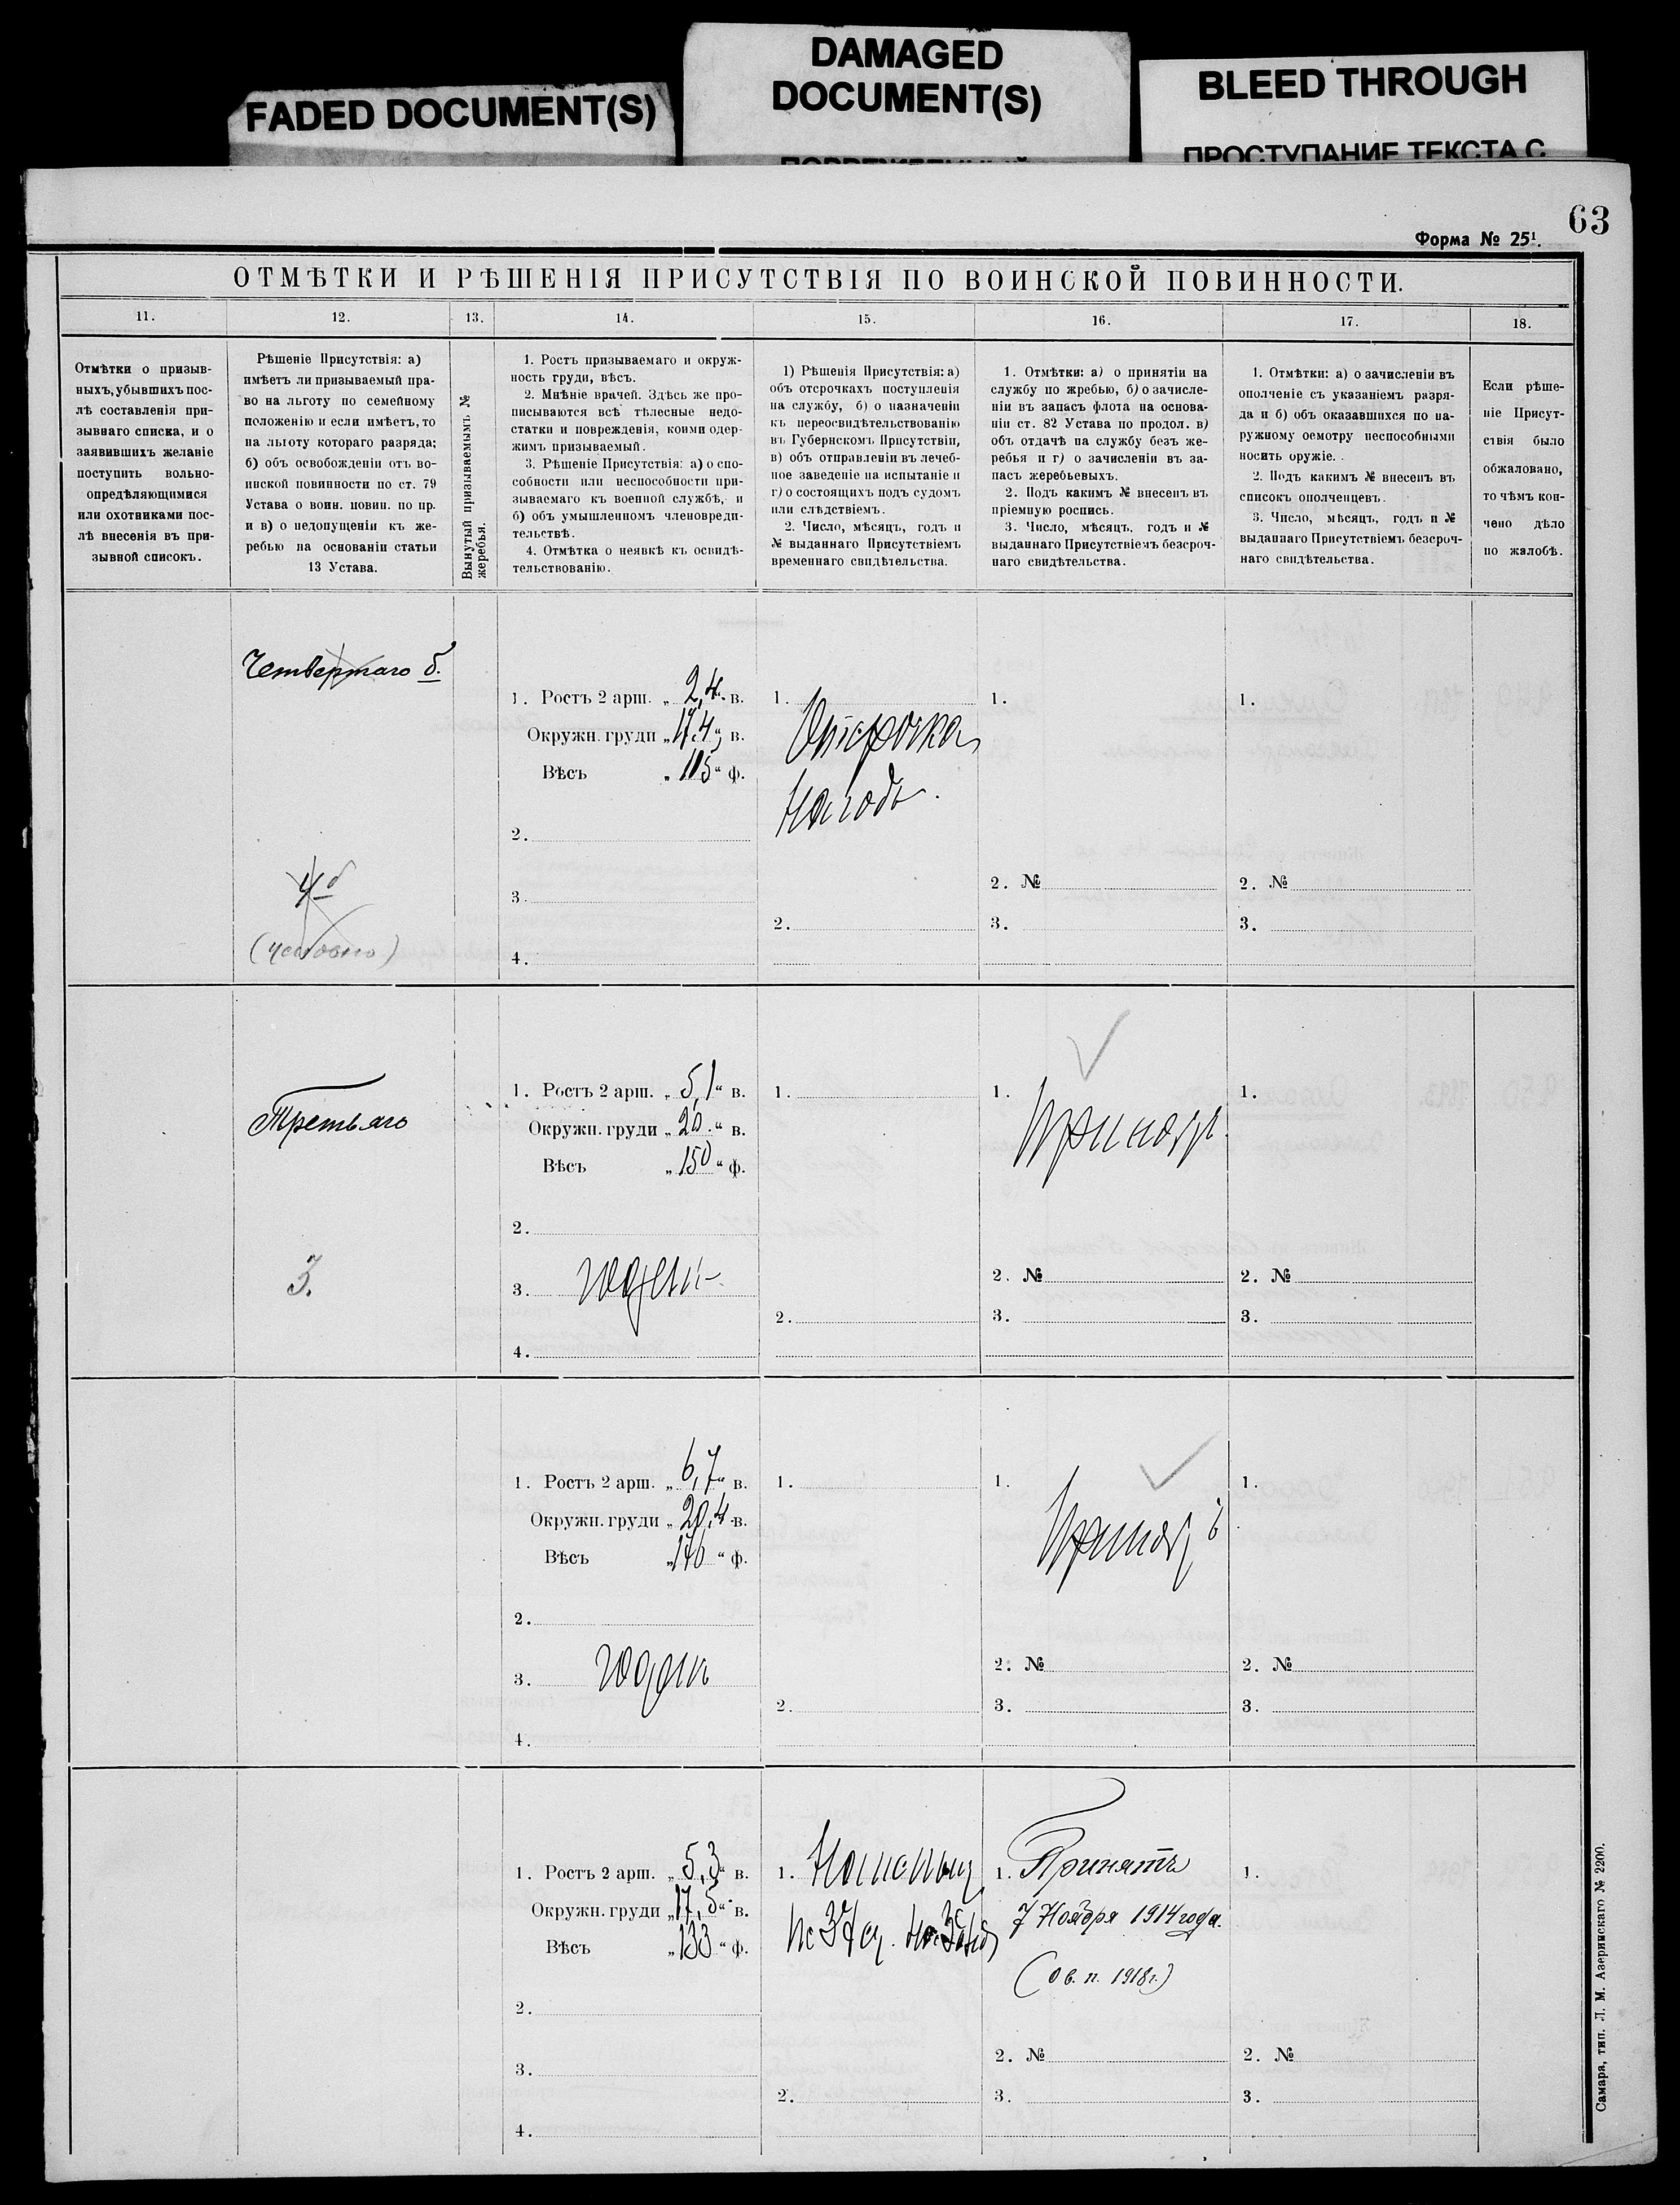 FADED DOCUMENT(S)
DAMAGED
DOCUMENT(S)
BLEED THROUGH
ПРОСТУПАНИЕ ТЕКСТА С
63
Форма № 25¹.
ОТМѢТКИ И РѢШЕНІЯ ПРИСУТСТВІЯ ПО ВОИНСКОЙ ПОВИННОСТИ.
11.
12.
13.
14.
15.
16.
17.
18.
Отмѣтки о призыв-
ныхъ, убывшихъ пос-
лѣ составленія при-
зывнаго списка, и о
заявившихъ желаніе
поступить вольно-
опредѣляющимися
или охотниками пос-
лѣ внесенія въ при-
зывной списокъ.
Рѣшеніе Присутствія: а)
имѣетъ ли призываемый пра-
во на льготу по семейному
положенію и если имѣетъ, то
на льготу котораго разряда;
б) объ освобожденіи отъ во-
инской повинности по ст. 79
Устава о воин. повин. по пр.
и в) о недопущеніи къ же-
ребью на основаніи статьи
13 Устава.
Вынутый призываемымъ №
жеребья.
1. Ростъ призываемаго и окруж-
ность груди, вѣсъ.
2. Мнѣніе врачей. Здѣсь же про-
писываются всѣ тѣлесные недо-
статки и поврежденія, коими одер-
жимъ призываемый.
3. Рѣшеніе Присутствія: а) о спо-
собности или неспособности при-
зываемаго къ военной службѣ, и
б) объ умышленномъ членовреди-
тельствѣ.
4. Отмѣтка о неявкѣ къ освидѣ-
тельствованію.
1) Рѣшенія Присутствія: а)
объ отсрочкахъ поступленія
на службу, б) о назначеніи
къ переосвидѣтельствованію
въ Губернскомъ Присутствіи,
в) объ отправленіи въ лечеб-
ное заведеніе на испытаніе и
г) о состоящихъ подъ судомъ
или слѣдствіемъ.
2. Число, мѣсяцъ, годъ и
№ выданнаго Присутствіемъ
временнаго свидѣтельства.
1. Отмѣтки: а) о принятіи на
службу по жребью, б) о зачисле-
ніи въ запасъ флота на основа-
ніи ст. 82 Устава по продол. в)
объ отдачѣ на службу безъ же-
ребья и г) о зачисленіи въ за-
пасъ жеребьевыхъ.
2. Подъ какимъ № внесенъ въ
пріемную роспись.
3. Число, мѣсяцъ, годъ и №
выданнаго Присутствіемъ безсроч-
наго свидѣтельства.
1. Отмѣтки: а) о зачисленіи въ
ополченіе съ указаніемъ разря-
да и б) объ оказавшихся по на-
ружному осмотру неспособными
носить оружіе.
2. Подъ какимъ № внесенъ въ
списокъ ополченцевъ.
3. Число, мѣсяцъ, годъ и №
выданнаго Присутствіемъ безсроч-
наго свидѣтельства.
Если рѣше-
ніе Присут-
ствія было
обжаловано,
то чѣмъ кон-
чено дѣло
по жалобѣ.
Четвертаго б.
4 б
(условно)
1. Ростъ 2 арш. „ 2,4 " в.
Окружн. груди „ 17,4 " в.
Вѣсъ „ 115 " ф.
2.
3.
4.
1. Отсрочка
на годъ.
2.
1.
2. №
3.
1.
2. №
3.
Третьяго
3.
1. Ростъ 2 арш. „ 5,1 " в.
Окружн. груди „ 20 " в.
Вѣсъ „ 150 " ф.
2.
3. годенъ
4.
1.
2.
1. Принятъ.
2. №
3.
1.
2. №
3.
1. Ростъ 2 арш. „ 6,7 " в.
Окружн. груди „ 20,4 " в.
Вѣсъ „ 140 " ф.
2.
3. годенъ
4.
1.
2.
1. Принятъ
2. №
3.
1.
2. №
3.
1. Ростъ 2 арш. „ 5,3 " в.
Окружн. груди „ 17,5 " в.
Вѣсъ „ 133 " ф.
2.
3.
4.
1.
2.
1. Принятъ
7 Ноября 1914 года.
(О в. п. 1918 г.)
2. №
3.
1.
2. №
3.
Самара, тип. Л. М. Азеринскаго № 2200.